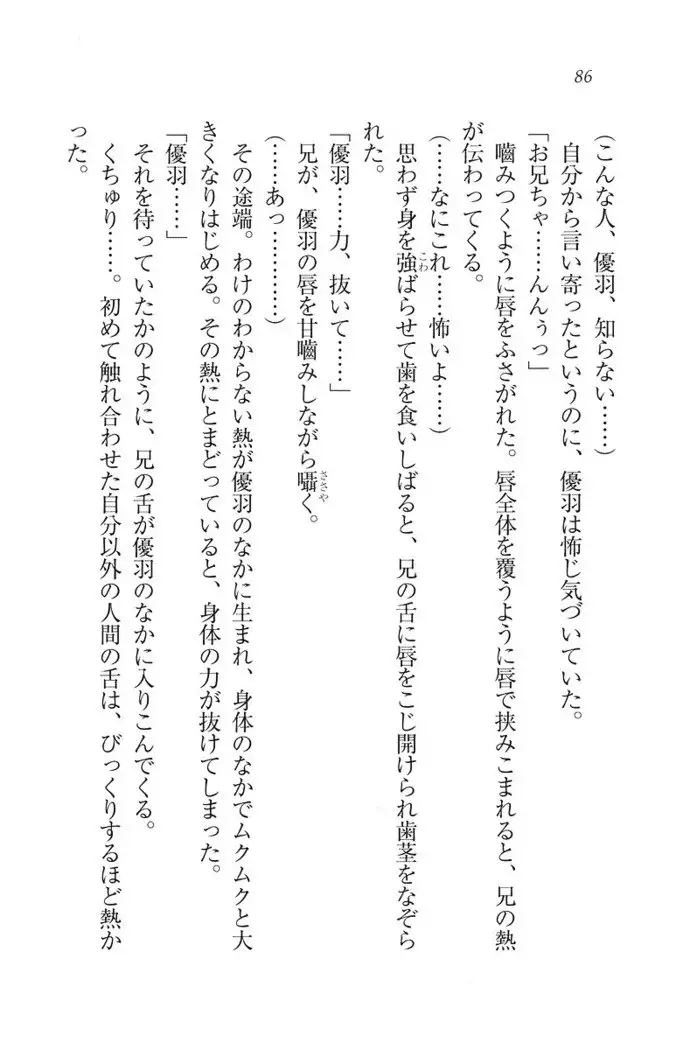 86
(こんな人、優羽、知らない……)
自分から言い寄ったというのに、優羽は怖じ気づいていた。
「お兄ちゃ……んんぅっ」
嚙みつくように唇をふさがれた。唇全体を覆うように唇で挟みこまれると、兄の熱
が伝わってくる。
(……なにこれ……怖いよ……)
思わず身を強こわばらせて歯を食いしばると、兄の舌に唇をこじ開けられ歯茎をなぞら
れた。
「優羽……力、抜いて……」
兄が、優羽の唇を甘嚙みしながら囁ささやく。
(……あっ…………)
その途端。わけのわからない熱が優羽のなかに生まれ、身体のなかでムクムクと大
きくなりはじめる。その熱にとまどっていると、身体の力が抜けてしまった。
「優羽……」
それを待っていたかのように、兄の舌が優羽のなかに入りこんでくる。
くちゅり……。初めて触れ合わせた自分以外の人間の舌は、びっくりするほど熱か
った。